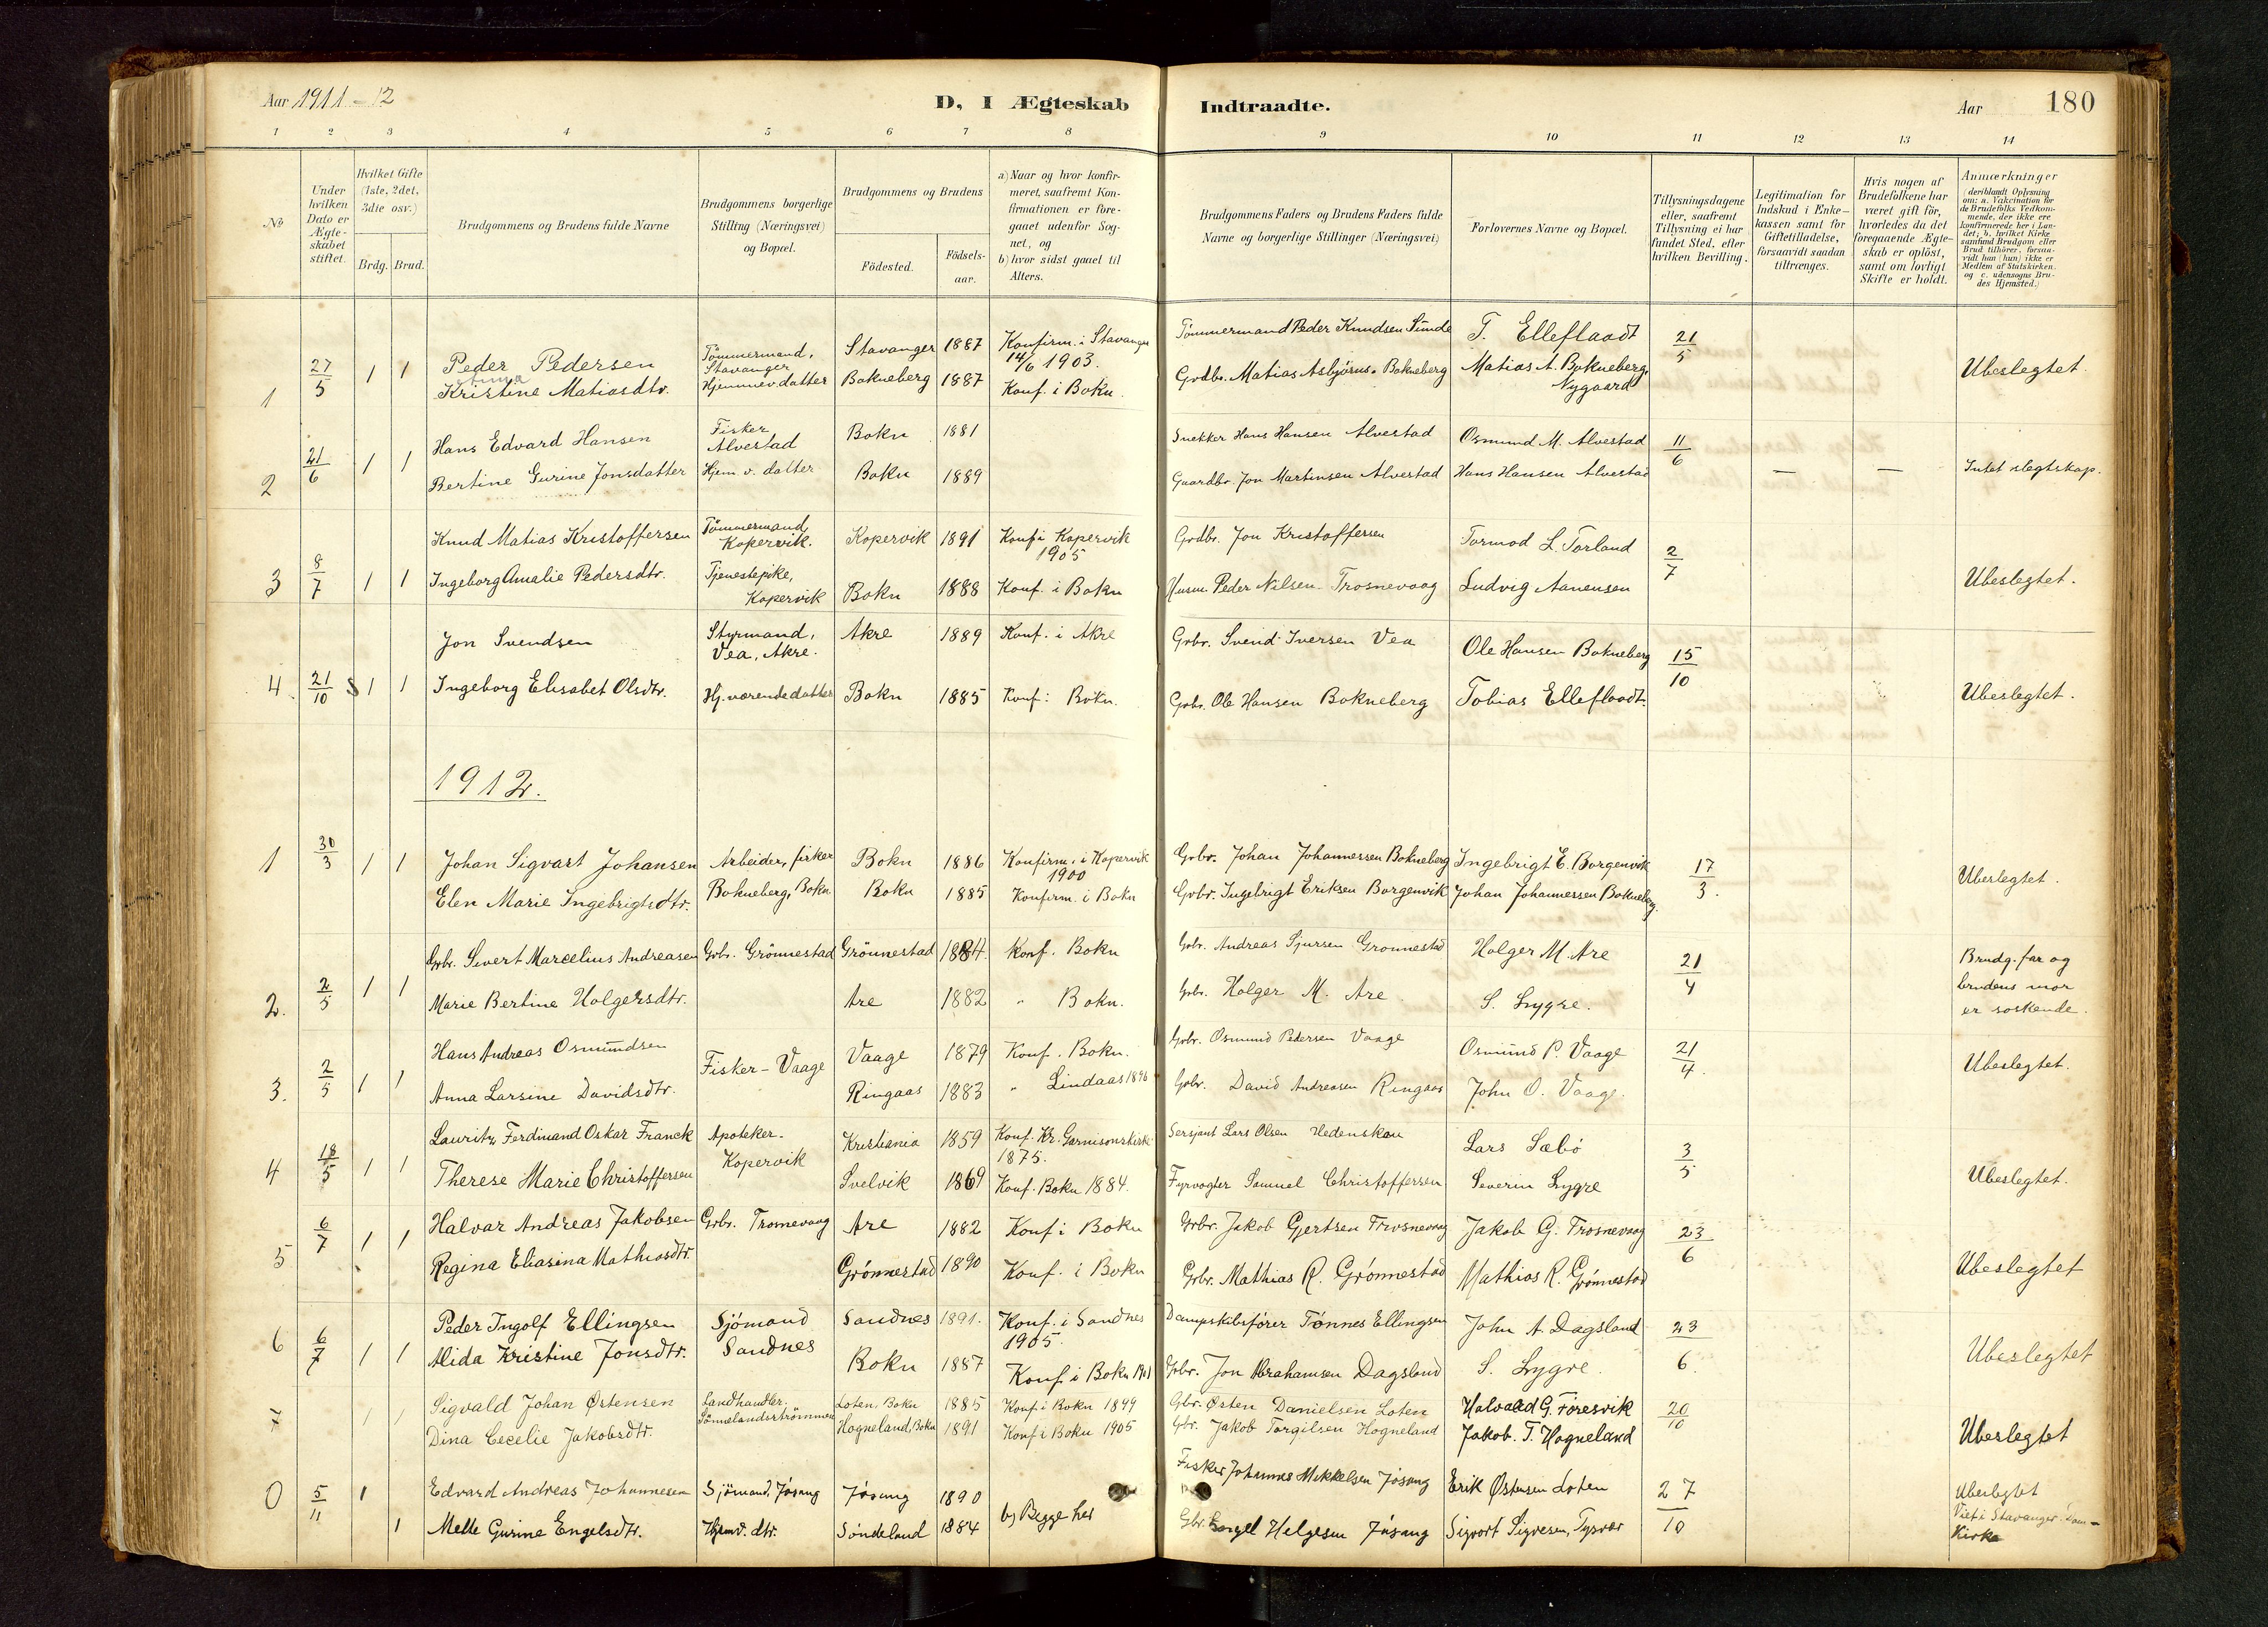 Aar 1911-12
D, I Ægteskab Indtraadte.
Aar
180
1 2 3 4 5 6 7 8 9 10 11 12 13 14
No
Under hvilken Dato er Ægteskabet stiftet.
Hvilket Gifte (1ste, 2det, 3die osv.)
Brdg. Brud.
Brudgommens og Brudens fulde Navne
Brudgommens borgerlige Stilling (Næringsvei) og Bopæl.
Brudgommens og Brudens
Födested.
Födsels-aar.
a) Naar og hvor konfirmeret, saafremt Konfirmationen er foregaaet udenfor Sognet, og
b) hvor sidst gaaet til Alters.
Brudgommens Faders og Brudens Faders fulde Navne og borgerlige Stillinger (Næringsvei)
Forlovernes Navne og Bopæl.
Tillysningsdagene eller, saafremt Tillysning ei har fundet Sted, efter hvilken Bevilling.
Legitimation for Indskud i Enkekassen samt for Giftetilladelse, forsaavidt saadan tiltrænges.
Hvis nogen af Brudefolkene har været gift för, hvorledes da det foregaaende Ægteskab er oplöst, samt om lovligt Skifte er holdt.
Anmærkninger (deriblandt Oplysning om: a. Vakcination for de Brudefolks Vedkommende, der ikke ere konfirmerede her i Landet; b. hvilket Kirkesamfund Brudgom eller Brud tilhörer, forsaavidt han (hun) ikke er Medlem af Statskirken. og c. udensogns Brudes Hjemsted.)
1 27/5 1 1 Peder Pedersen Tömmermand, Stavanger Stavanger 1887 Konfirm. i Stavanger 14/6 1903. Tömmermand Peder Knudsen Sunde T. Elleflaadt 21/5 Ubeslegtet.
Kristine Matiasdtr. Hjemmev. datter Bokneberg 1887 Konf. i Bokn. Grdbr. Matias Asbjörns. Bokneberg Matias A. Bokneberg, Nygaard
2 21/6 1 1 Hans Edvard Hansen Fisker Alvestad Bokn 1881 Snekker Hans Hansen Alvestad Osmund M. Alvestad 11/6 — — Intet slegtskap.
Bertine Gurine Jonsdatter Hjem v. datter Bokn 1889 Gaardbr. Jon Martinsen Alvestad Hans Hansen Alvestad
3 8/7 1 1 Knud Matias Kristoffersen Tömmermand, Kopervik. Kopervik 1891 Konf i Kopervik 1905 Grdbr. Jon Kristoffersen Tormod L. Torland 2/7 Ubeslegtet.
Ingeborg Amalie Pedersdtr. Tjenestepike, Kopervik Bokn 1888 Konf. i Bokn Husm. Peder Nilsen Trosnevaag Ludvig Aanensen
4. 21/10 1 1 Jon Svendsen Styrmand, Vea, Akre. Akre 1889 Konf. i Akre Grbr. Svend Iversen Vea Ole Hansen Bokneberg 15/10 Ubeslegtet.
Ingeborg Elisabet Olsdtr. Hj. værende datter Bokn 1885 Konf: Bokn. Grbr. Ole Hansen Bokneberg Tobias Elleflaadt.
1912.
1 30/3 1 1 Johan Sigvart Johansen Arbeider, fisker Bokn 1886 Konfirm. i Kopervik 1900 Grbr. Johan Johannessen Bokneberg Ingebrigt E. Borgenvik 17/3. Ubeslegtet.
Elen Marie Ingebrigtsdtr. Bokneberg, Bokn Bokn 1885 Konfirm. i Bokn Grbr. Ingebrigt Eriksen Borgenvik Johan Johannessen Bokneberg.
2. 2/5 1 1 Grbr. Sivert Marcelius Andreasen Grbr. Grönnestad Grönnestad 1884. Konf. Bokn Grbr. Andreas Sjursen Gronnestad Holger M. Are 21/4 Brudg. far og brudens mor er soskende.
Marie Bertine Holgersdtr. Are 1882 " Bokn. Grbr. Holger M. Are S. Lygre.
3. 2/5 1 1 Hans Andreas Osmundsen Fisker - Vaage Vaage 1879 Konf. Bokn. Grbr. Osmund Pedersen Vaage Osmund P. Vaage 21/4. Ubeslegtet.
Anna Larsine Davidsdtr. Ringaas 1883 " Lindaas 1896 Grbr. David Andreasen Ringaas John O. Vaage.
4 18/5 1 1 Lauritz Ferdinand Oskar Franck Apoteker. Kopervik Kristiania 1859 Konf. Kr. Garnisonskirke 1875. Sersjant Lars Olsen Hedenskou Lars Sæbö 3/5 Ubeslegtet.
Therese Marie Christoffersen Svelvik 1869 Konf. Bokn 1884. Fyrvogter Samuel Christoffersen Severin Lygre
5 6/7 1 1 Halvar Andreas Jakobsen Grbr. Trosnevaag Are 1882 Konf i Bokn Grbr. Jakob Gjertsen Trosnevaag Jakob G. Trosnevaag 23/6 Ubeslegtet
Regina Eliasina Mathiasdtr. Grönnestad 1890 Konf. i Bokn Grbr. Mathias R. Grönnestad Mathias R. Grönnestad
6 6/7 1 1 Peder Ingolf Ellingsen Sjömand Sandnes Sandnes 1891. Konf. i Sandnes 1905. Dampskibsförer Tönnes Ellingsen John A. Dagsland 23/6 Ubeslegtet
Alida Kristine Jonsdtr. Bokn 1887 Konf i Bokn 1901 Grbr. Jon Abrahamsen Dagsland S. Lygre.
7 1 1 Sigvald Johan Østensen Landhandler, Loten, Bokn 1885 Konf i Bokn 1899 Gbr. Østen Danielsen Loten Halvard G. Föresvik 20/10 Ubeslegtet
Dina Cecelie Jakobsdtr. Hogneland, Bokn 1891 Konf i Bokn 1905 Gbr. Jakob Torgilsen Hogneland Jakob. T. Hogneland
0 5/11 1 Edvard Andreas Johannesen Sjömand, Jösang Jösang 1890 b) Begge her Fisker Johannes Mikkelsen Jösang Erik Østensen Loten 27/10 Ubeslegtet
1 Melle Gurine Engelsdtr. Hjemv. dtr. Söndeland 1884 Gbr. Engel Helgesen Jösang Sigvart Sigvesen, Tysvær Viet i Stavanger Dom-Kirke